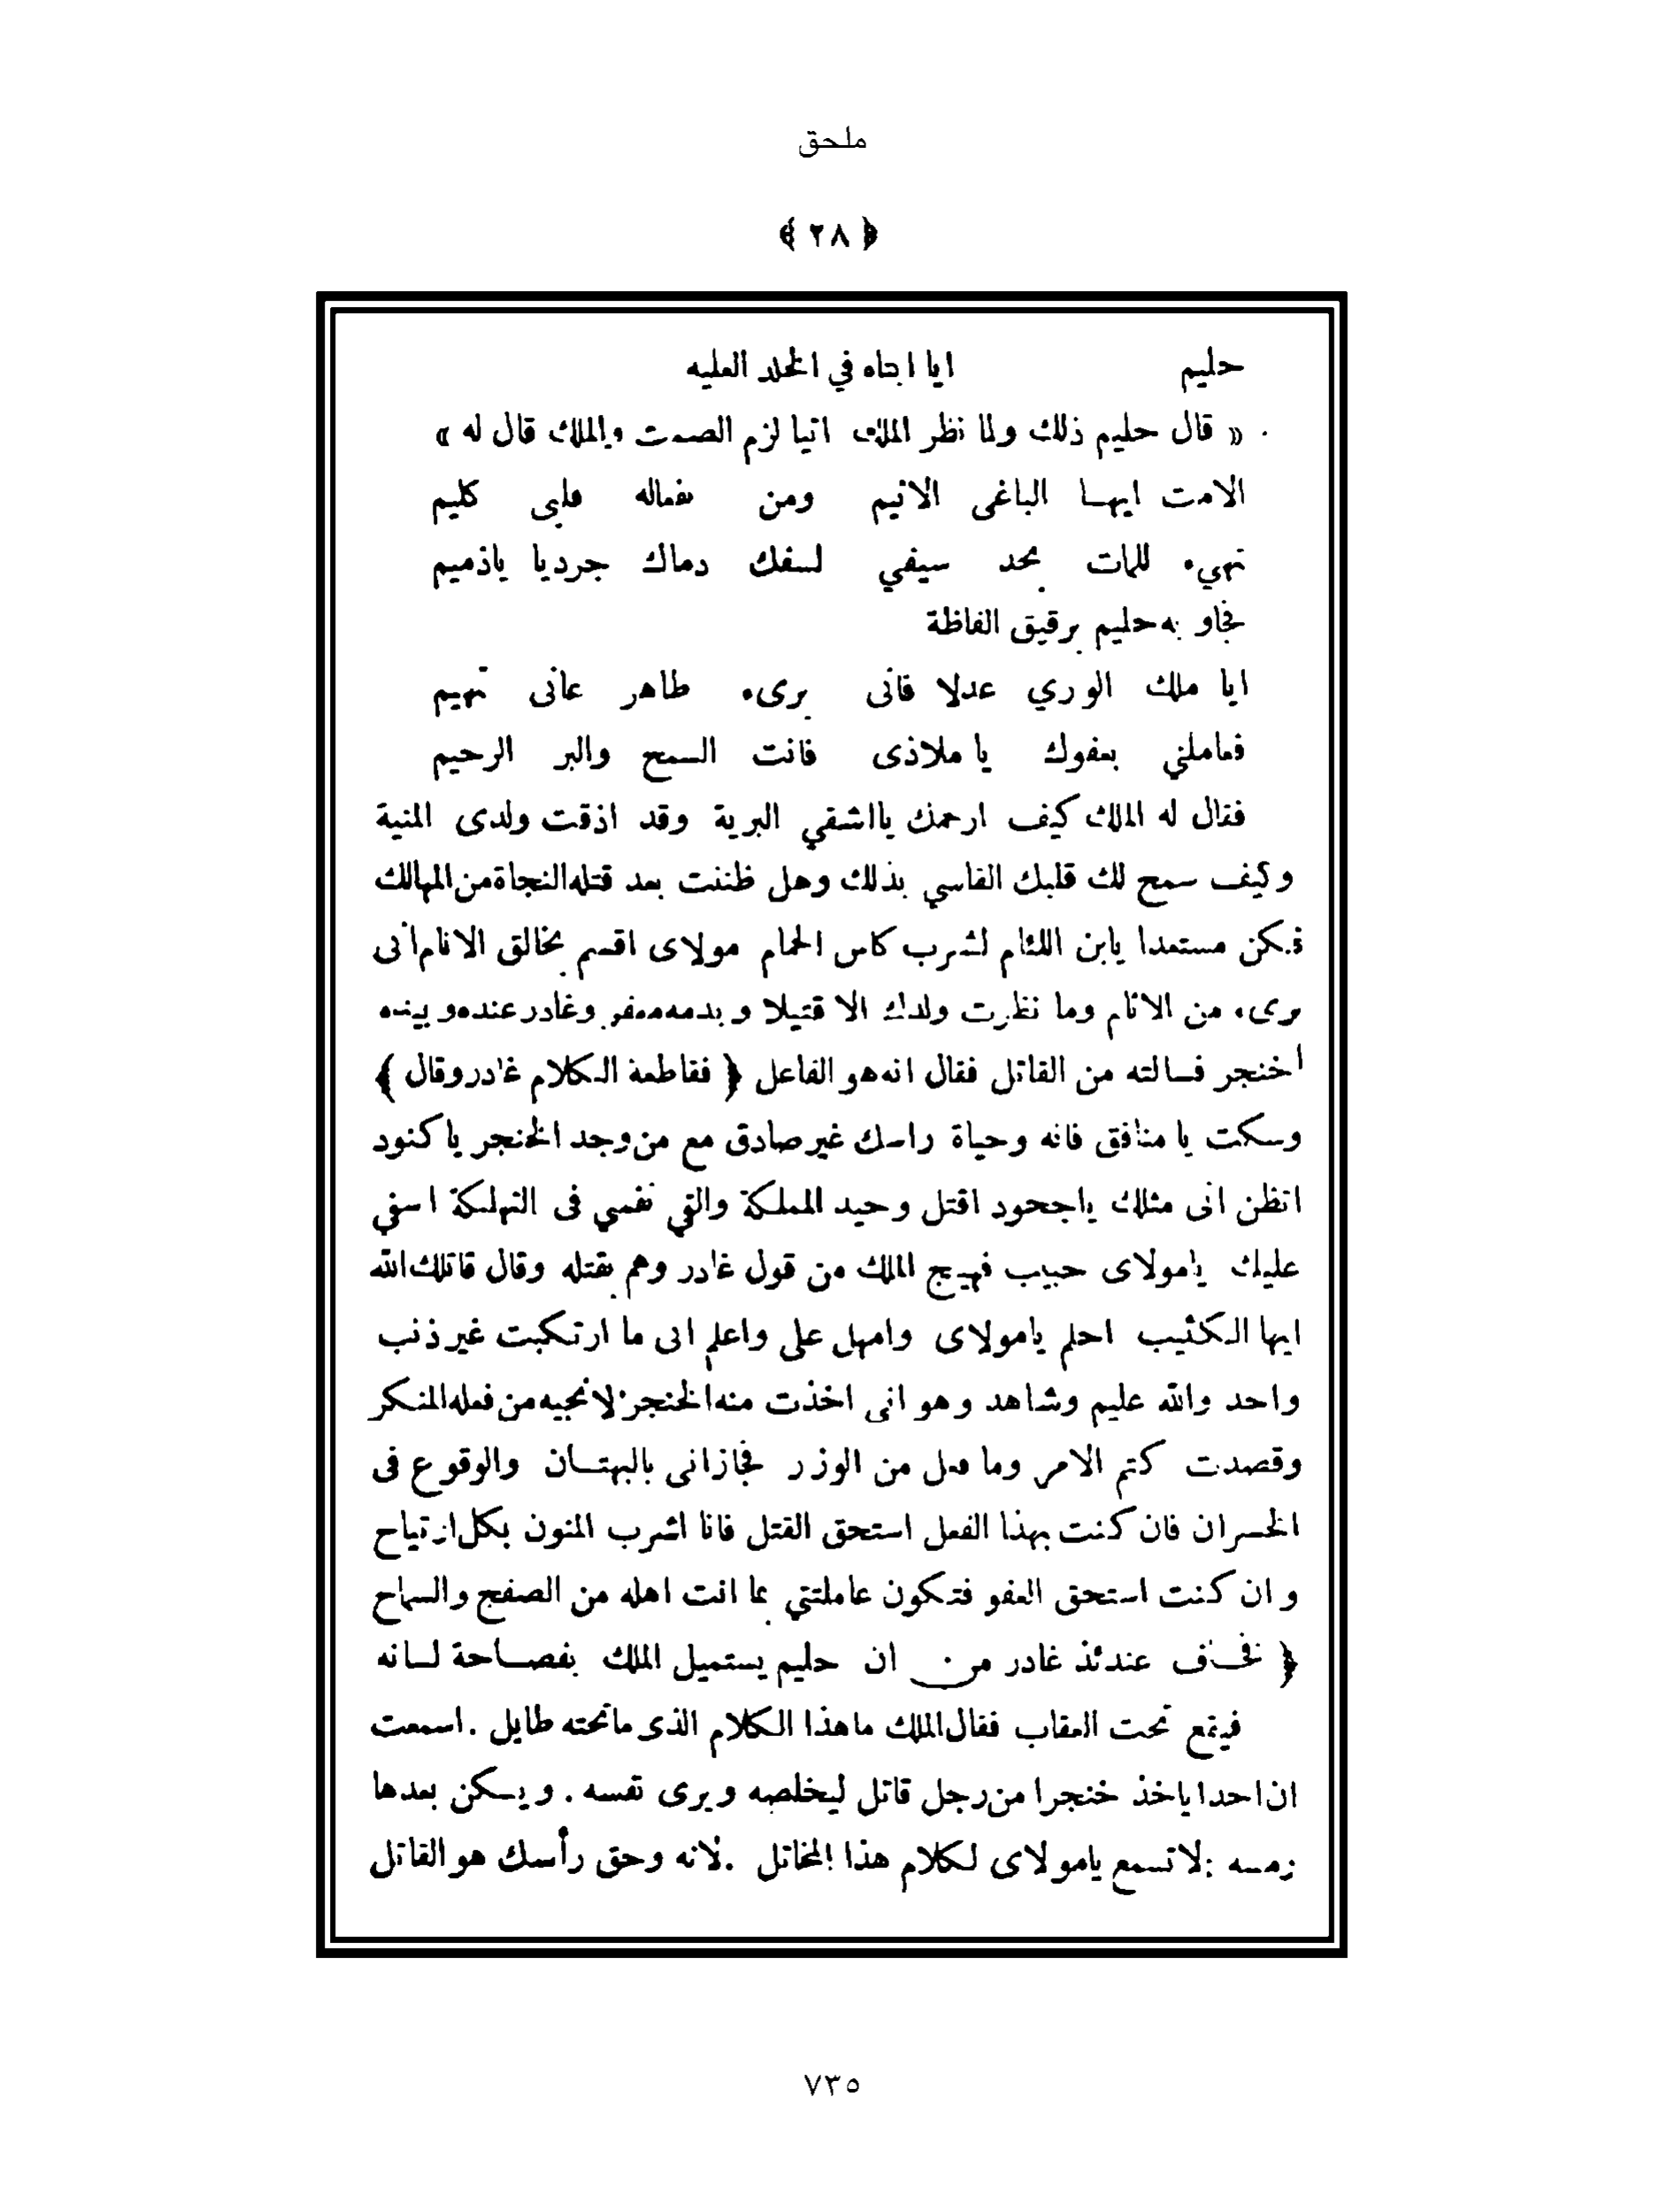 ملحق
﴿ ٢٨ ﴾
حليم ايا ابتاه في الخلد العليه
« قال حليم ذلك ولما نظر الملك اتيا لزم الصمت والملك قال له »
الامت ايهـا الباغى الاثيم ومن فعاله قلبى كليم
تهيء للمات بحد سيفي لسفك دماك جرديا ياذميم
فجاو به حليم برقيق الفاظة
ايا ملك الوري عدلا فانى برىء طاهر عانى تهيم
فعاملني بعفوك يا ملاذى فانت السمح والبر الرحيم
فقال له الملك كيف ارحمك يااشقي البرية وقد اذقت ولدى المنية
وكيف سمح لك قلبك القاسي بذلك وهل ظننت بعد قتله النجاة من المهالك
فكن مستعدا يابن اللئام لشرب كاس الحمام مولاى اقسم بخالق الانام انى
برىء من الاثام وما نظرت ولدك الا قتيلا و بدمه معفر وغادر عنده و بيده
اخنجر فسالته من القاتل فقال انه هو الفاعل ﴿ فقاطعة الكلام غادر وقال ﴾
وسكت يا منافق فانه وحياة راسك غير صادق مع من وجد الخنجر يا كنود
اتظن انى مثلك ياجحود اقتل وحيد المملكة والقي نفسي فى التهلكة اسفي
عليك يامولاى حبيب فهيج الملك من قول غادر وهم بقتله وقال قاتلك الله
ايها الكئيب احلم يامولاى وامهل على واعلم انى ما ارتكبت غير ذنب
واحد والله عليم وشاهد وهو انى اخذت منه الخنجر لانجيه من فعله المنكر
وقصدت كتم الامر وما فعل من الوزر فجازانى بالبهتـان والوقوع فى
الخسران فان كنت بهذا الفعل استحق القتل فانا اشرب المنون بكل ارتياح
وان كنت استحق العفو فتكون عاملتني بما انت اهله من الصفح والسماح
﴿ فخـاف عندئذ غادر من ان حليم يستميل الملك بفصـاحة لسانه
فيقع تحت العقاب فقال الملك ماهذا الكلام الذى ماتحته طايل . اسمعت
ان احدا ياخذ خنجرا من رجل قاتل ليخلصه ويرى نفسه . ويسكن بعدها
رمسه : لاتسمع يامولاى لكلام هذا المخاتل . لانه وحق رأسك هو القاتل
٧٣٥